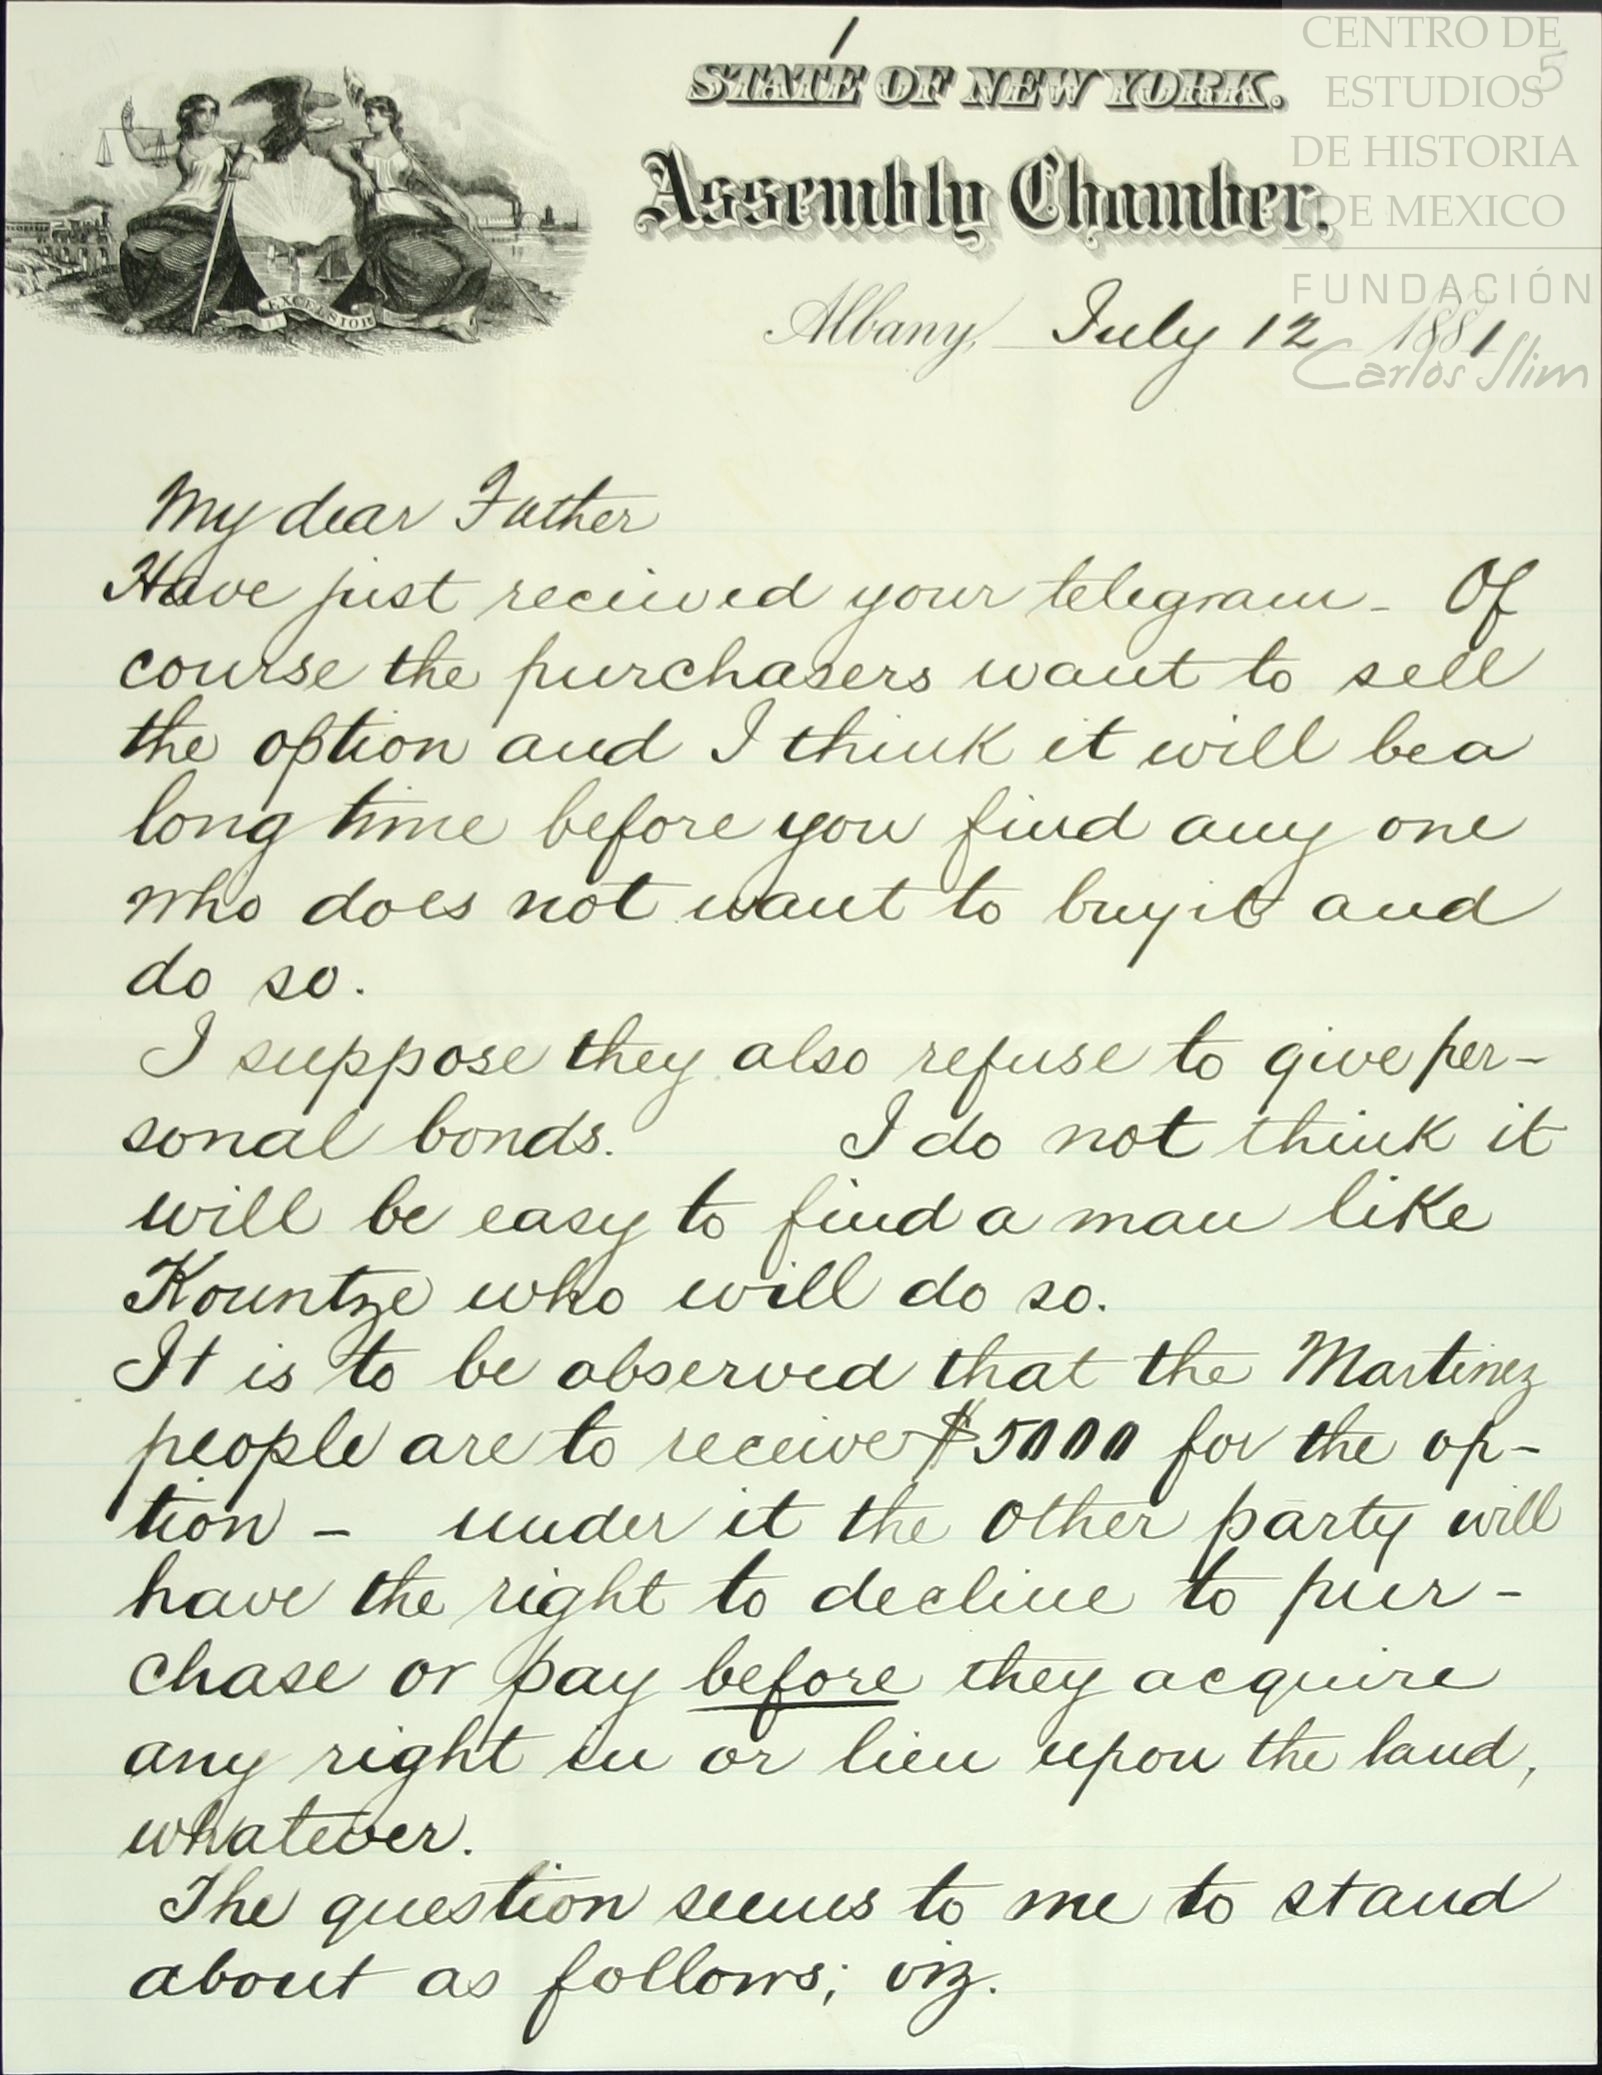 1
5
STATE OF NEW YORK.
Assembly Chamber,
Albany, July 12 1881
EXCELSIOR
CENTRO DE
ESTUDIOS
DE HISTORIA
DE MEXICO
FUNDACIÓN
Carlos Slim
My dear Father
Have just received your telegram - Of
course the purchasers want to sell
the option and I think it will be a
long time before you find any one
who does not want to buy it and
do so.
I suppose they also refuse to give per-
sonal bonds. I do not think it
will be easy to find a man like
Kountze who will do so.
It is to be observed that the Martinez
people are to receive $5000 for the op-
tion - under it the other party will
have the right to decline to pur-
chase or pay before they acquire
any right in or lien upon the land,
whatever.
The question seems to me to stand
about as follows; viz.